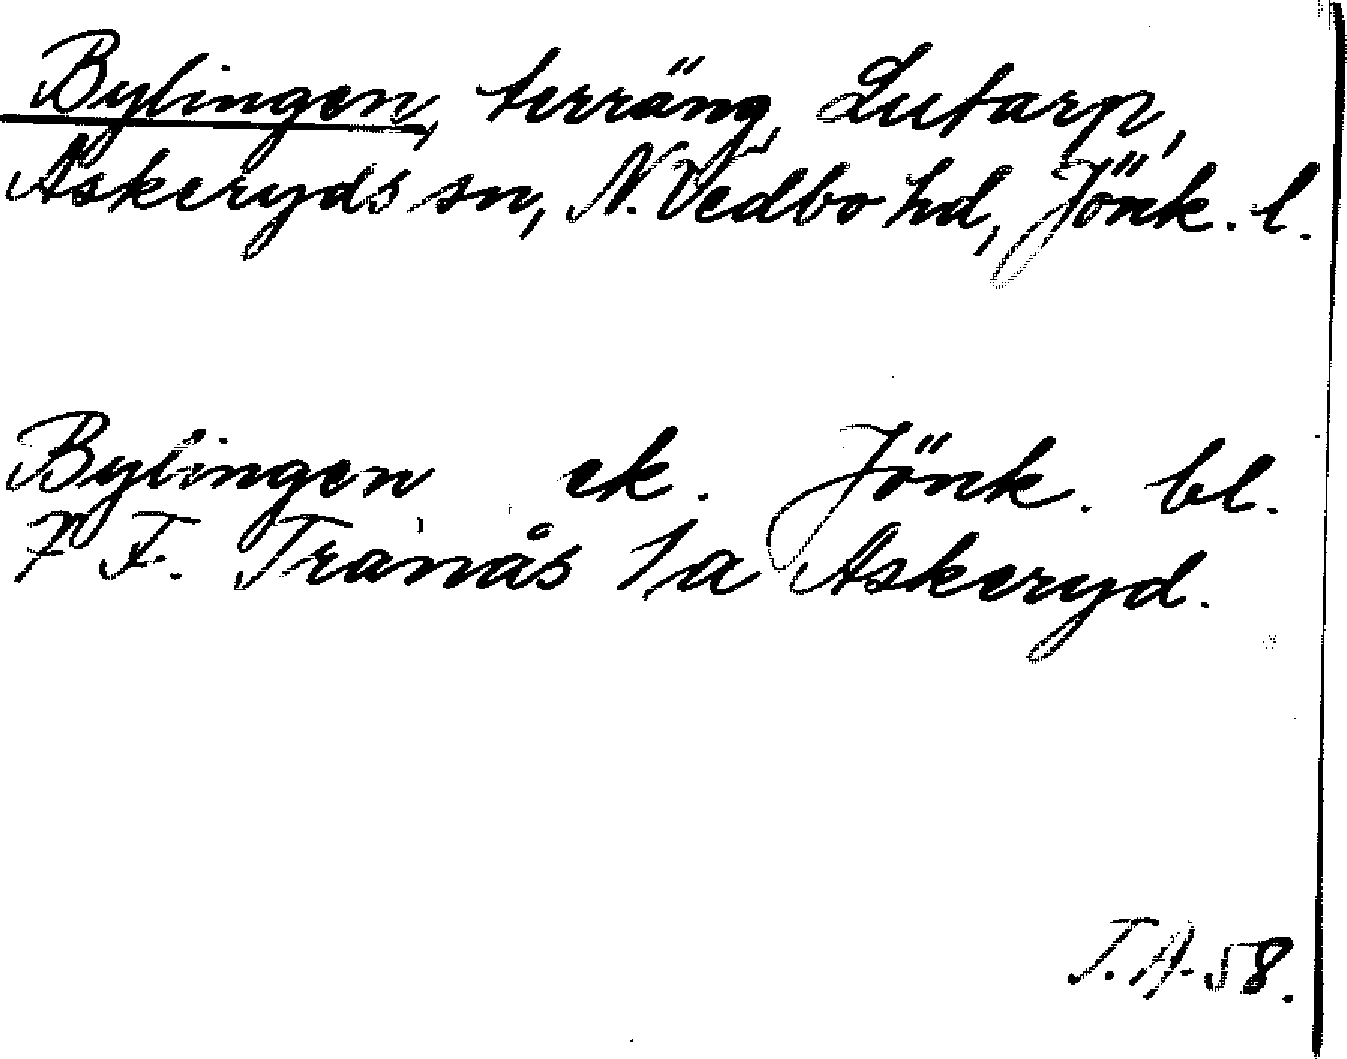 Bylingen, terräng, Lutarp,
Askeryds sn, N. Vedbo hd, Jönk. l.
Bylingen ek. Jönk. bl.
7 F. Tranås 1a Askeryd.
T. A. 58.